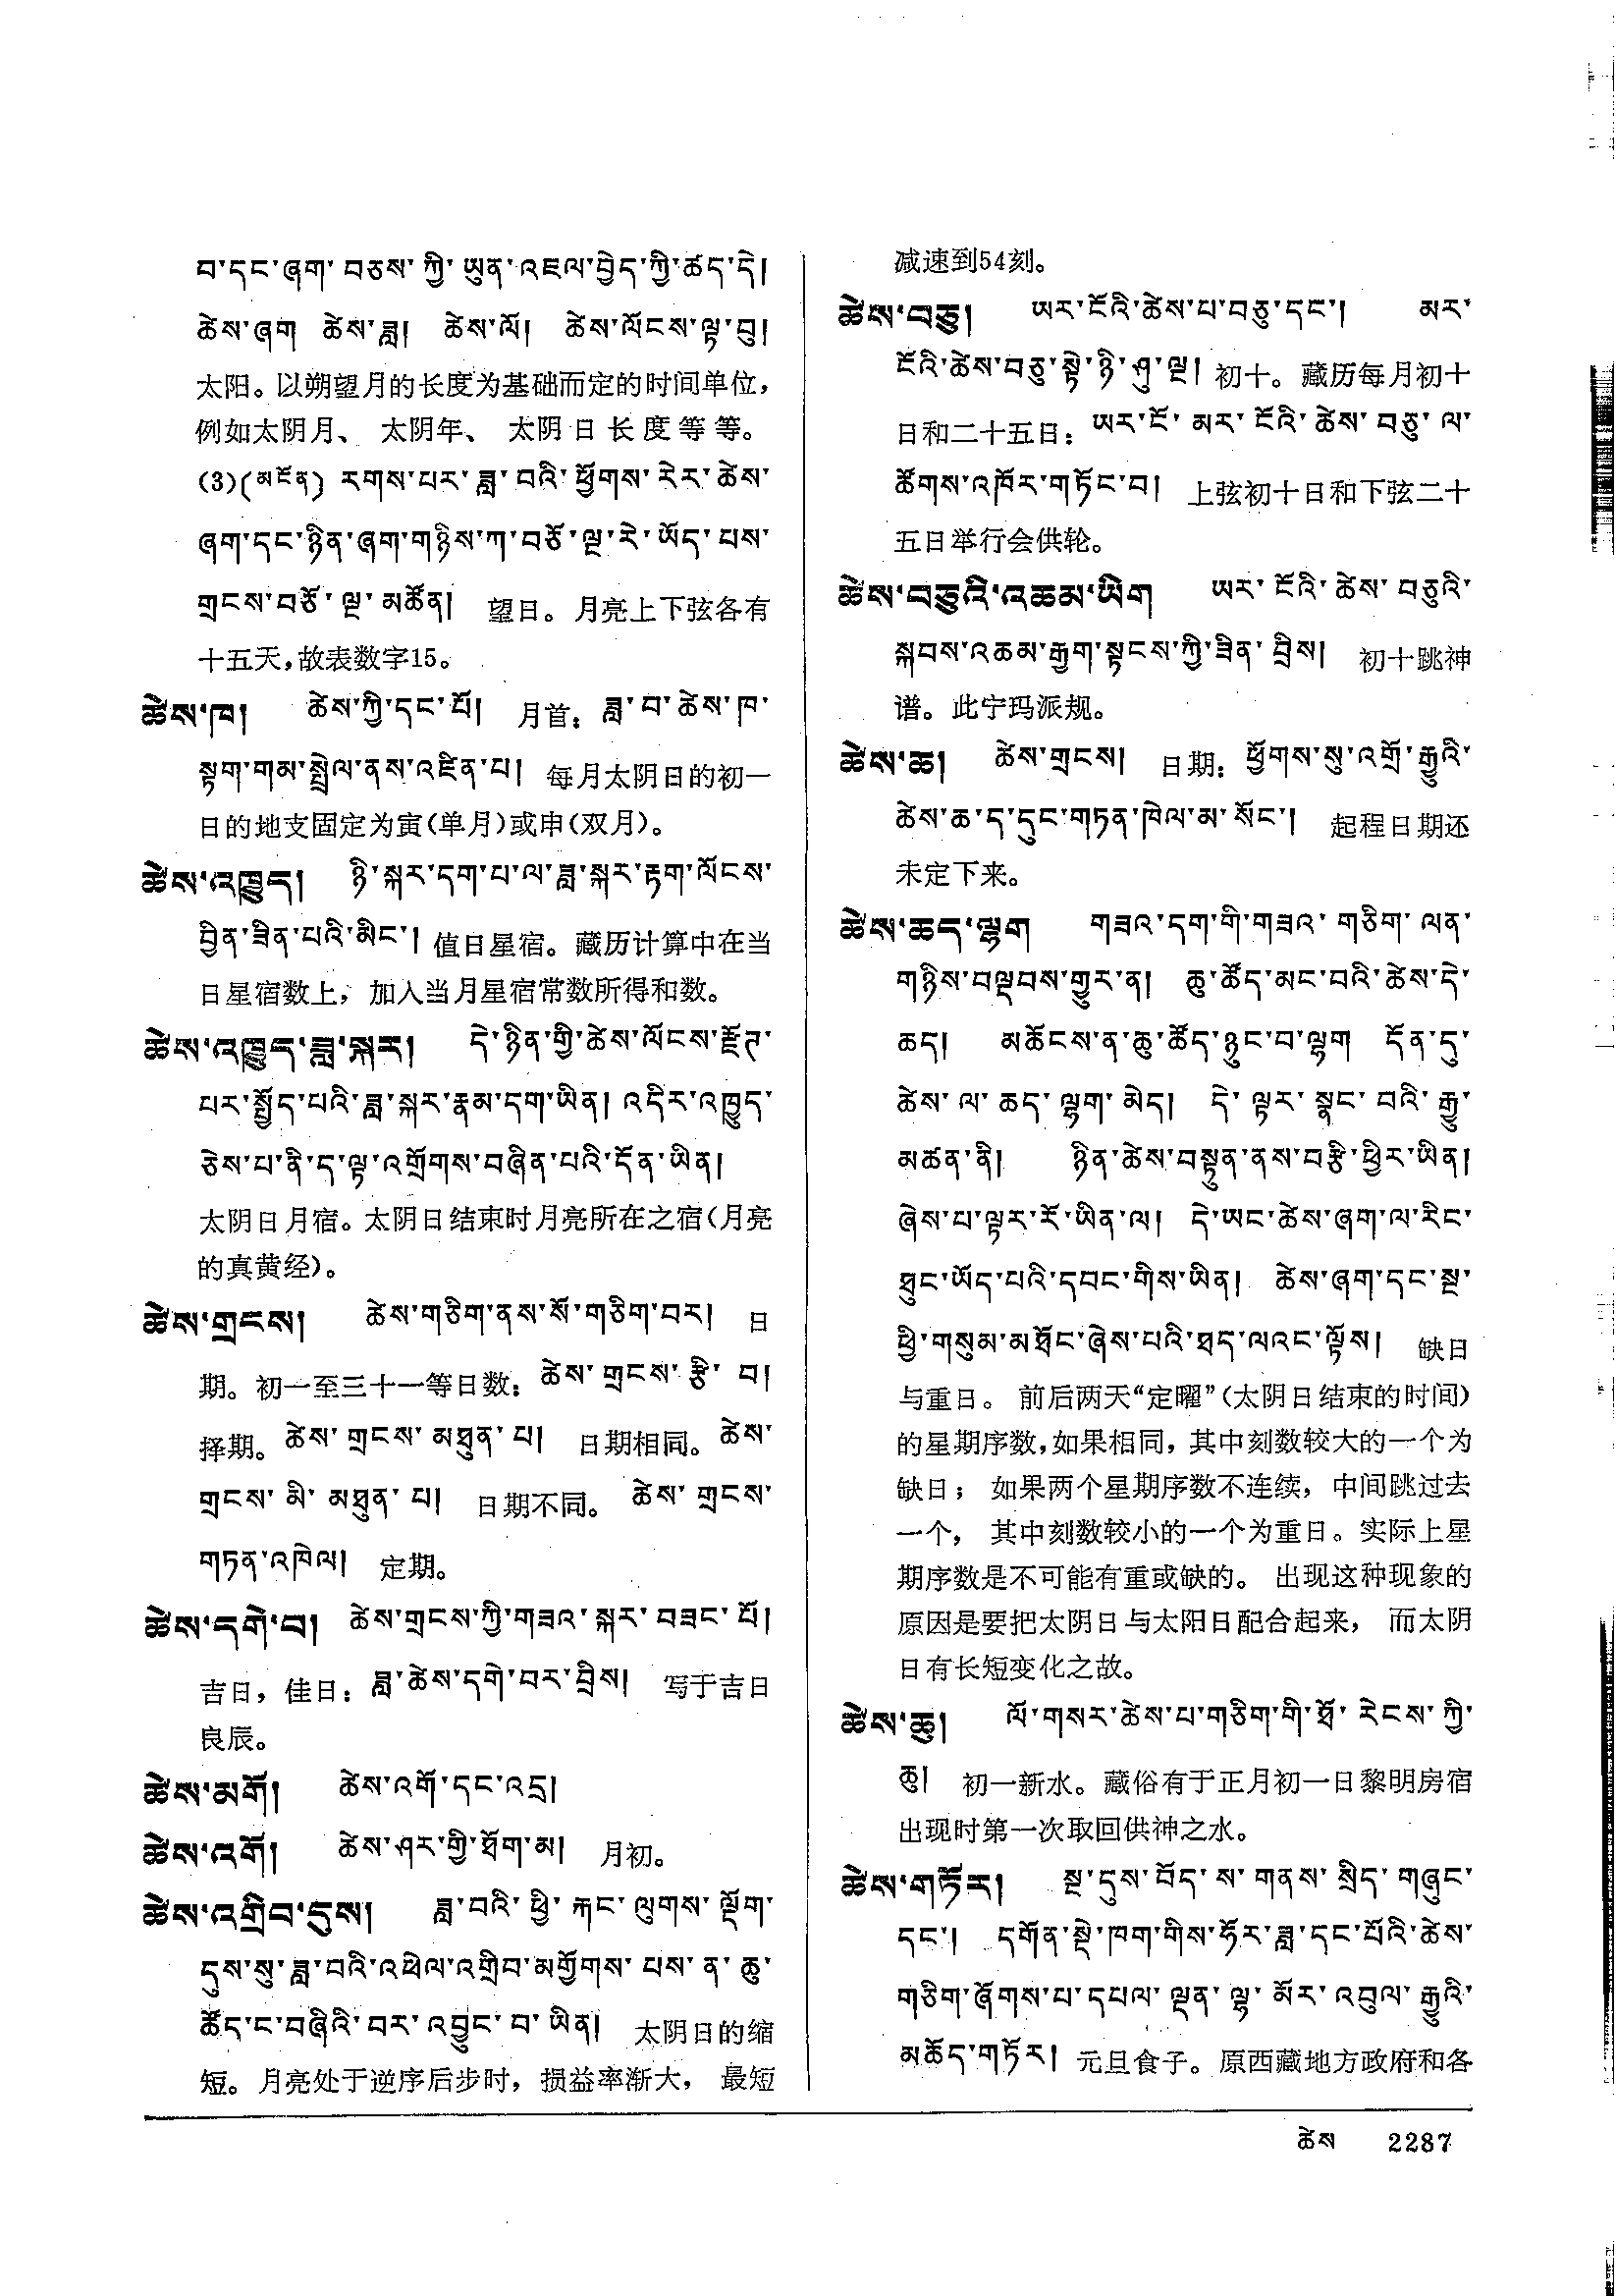 བ་དང་ཞག་བཅས་ཀྱི་ཡུན་འཇལ་བྱེད་ཀྱི་ཚད་དེ།
ཚེས་ཞག ཚེས་ཟླ། ཚེས་ལོ། ཚེས་ལོངས་ལྟ་བུ།
太阳。以朔望月的长度为基础而定的时间单位，
例如太阴月、太阴年、太阴日长度等等。
(3)(མངོན) རགས་པར་ཟླ་བའི་ཕྱོགས་རེར་ཚེས་
ཞག་དང་ཉིན་ཞག་གཉིས་ཀ་བཅོ་ལྔ་རེ་ཡོད་པས་
གྲངས་བཅོ་ལྔ་མཚོན། 望日。月亮上下弦各有
十五天，故表数字15。
ཚེས་ཁ། ཚེས་ཀྱི་དང་པོ། 月首：ཟླ་བ་ཚེས་ཁ་
སྟག་གམ་སྤྲེལ་ནས་འཛིན་པ། 每月太阴日的初一
日的地支固定为寅(单月)或申(双月)。
ཚེས་འཁྱུད། ཉི་སྐར་དག་པ་ལ་ཟླ་སྐར་རྟག་ལོངས་
བྱིན་ཟིན་པའི་མིང་། 值日星宿。藏历计算中在当
日星宿数上，加入当月星宿常数所得和数。
ཚེས་འཁྱུད་ཟླ་སྐར། དེ་ཉིན་གྱི་ཚེས་ལོངས་རྫོཊ་
པར་སྤྱོད་པའི་ཟླ་སྐར་རྣམ་དག་ཡིན། འདིར་འཁྱུད་
ཅེས་པ་ནི་ད་ལྟ་འགྲོགས་བཞིན་པའི་དོན་ཡིན།
太阴日月宿。太阴日结束时月亮所在之宿(月亮
的真黄经)。
ཚེས་གྲངས། ཚེས་གཅིག་ནས་སོ་གཅིག་བར། 日
期。初一至三十一等日数：ཚེས་གྲངས་རྩི་བ།
择期。ཚེས་གྲངས་མཐུན་པ། 日期相同。ཚེས་
གྲངས་མི་མཐུན་པ། 日期不同。ཚེས་གྲངས་
གཏན་འཁེལ། 定期。
ཚེས་དགེ་བ། ཚེས་གྲངས་ཀྱི་གཟའ་སྐར་བཟང་པོ།
吉日，佳日：ཟླ་ཚེས་དགེ་བར་བྲིས། 写于吉日
良辰。
ཚེས་མགོ། ཚེས་འགོ་དང་འདྲ།
ཚེས་འགོ། ཚེས་ཤར་གྱི་ཐོག་མ། 月初。
ཚེས་འགྲིབ་དུས། ཟླ་བའི་ཕྱི་རྐང་ལུགས་ལྡོག་
དུས་སུ་ཟླ་བའི་འཕེལ་འགྲིབ་མགྱོགས་པས་ན་ཆུ་
ཚོད་ང་བཞིའི་བར་འབྱུང་བ་ཡིན། 太阴日的缩
短。月亮处于逆序后步时，损益率渐大，最短
减速到54刻。
ཚེས་བཅུ། ཡར་ངོའི་ཚེས་པ་བཅུ་དང་། མར་
ངོའི་ཚེས་བཅུ་སྟེ་ཉི་ཤུ་ལྔ། 初十。藏历每月初十
日和二十五日：ཡར་ངོ་མར་ངོའི་ཚེས་བཅུ་ལ་
ཚོགས་འཁོར་གཏོང་བ། 上弦初十日和下弦二十
五日举行会供轮。
ཚེས་བཅུའི་འཆམ་ཡིག ཡར་ངོའི་ཚེས་བཅུའི་
སྐབས་འཆམ་རྒྱག་སྟངས་ཀྱི་ཟིན་བྲིས། 初十跳神
谱。此宁玛派规。
ཚེས་ཆ། ཚེས་གྲངས། 日期：ཕྱོགས་སུ་འགྲོ་རྒྱུའི་
ཚེས་ཆ་ད་དུང་གཏན་ཁེལ་མ་སོང་། 起程日期还
未定下来。
ཚེས་ཆད་ལྷག གཟའ་དག་གི་གཟའ་གཅིག་ལན་
གཉིས་བལྡབས་གྱུར་ན། ཆུ་ཚོད་མང་བའི་ཚེས་དེ་
ཆད། མཆོངས་ན་ཆུ་ཚོད་ཉུང་བ་ལྷག དོན་དུ་
ཚེས་ལ་ཆད་ལྷག་མེད། དེ་ལྟར་སྣང་བའི་རྒྱུ་
མཚན་ནི། ཉིན་ཚེས་བསྟུན་ནས་བརྩི་ཕྱིར་ཡིན།
ཞེས་པ་ལྟར་རོ་ཡིན་ལ། དེ་ཡང་ཚེས་ཞག་ལ་རིང་
ཐུང་ཡོད་པའི་དབང་གིས་ཡིན། ཚེས་ཞག་དང་སྔ་
ཕྱི་གསུམ་མཐོང་ཞེས་པའི་ཐད་ལའང་ལྟོས། 缺日
与重日。前后两天“定曜”(太阴日结束的时间)
的星期序数，如果相同，其中刻数较大的一个为
缺日；如果两个星期序数不连续，中间跳过去
一个，其中刻数较小的一个为重日。实际上星
期序数是不可能有重或缺的。出现这种现象的
原因是要把太阴日与太阳日配合起来，而太阴
日有长短变化之故。
ཚེས་ཆུ། ལོ་གསར་ཚེས་པ་གཅིག་གི་ཐོ་རེངས་ཀྱི་
ཆུ། 初一新水。藏俗有于正月初一日黎明房宿
出现时第一次取回供神之水。
ཚེས་གཏོར། སྔ་དུས་བོད་ས་གནས་སྲིད་གཞུང་
དང་། དགོན་སྡེ་ཁག་གིས་ཧོར་ཟླ་དང་པོའི་ཚེས་
གཅིག་ཞོགས་པ་དཔལ་ལྡན་ལྷ་མོར་འབུལ་རྒྱུའི་
མཆོད་གཏོར། 元旦食子。原西藏地方政府和各
ཚེས 2287